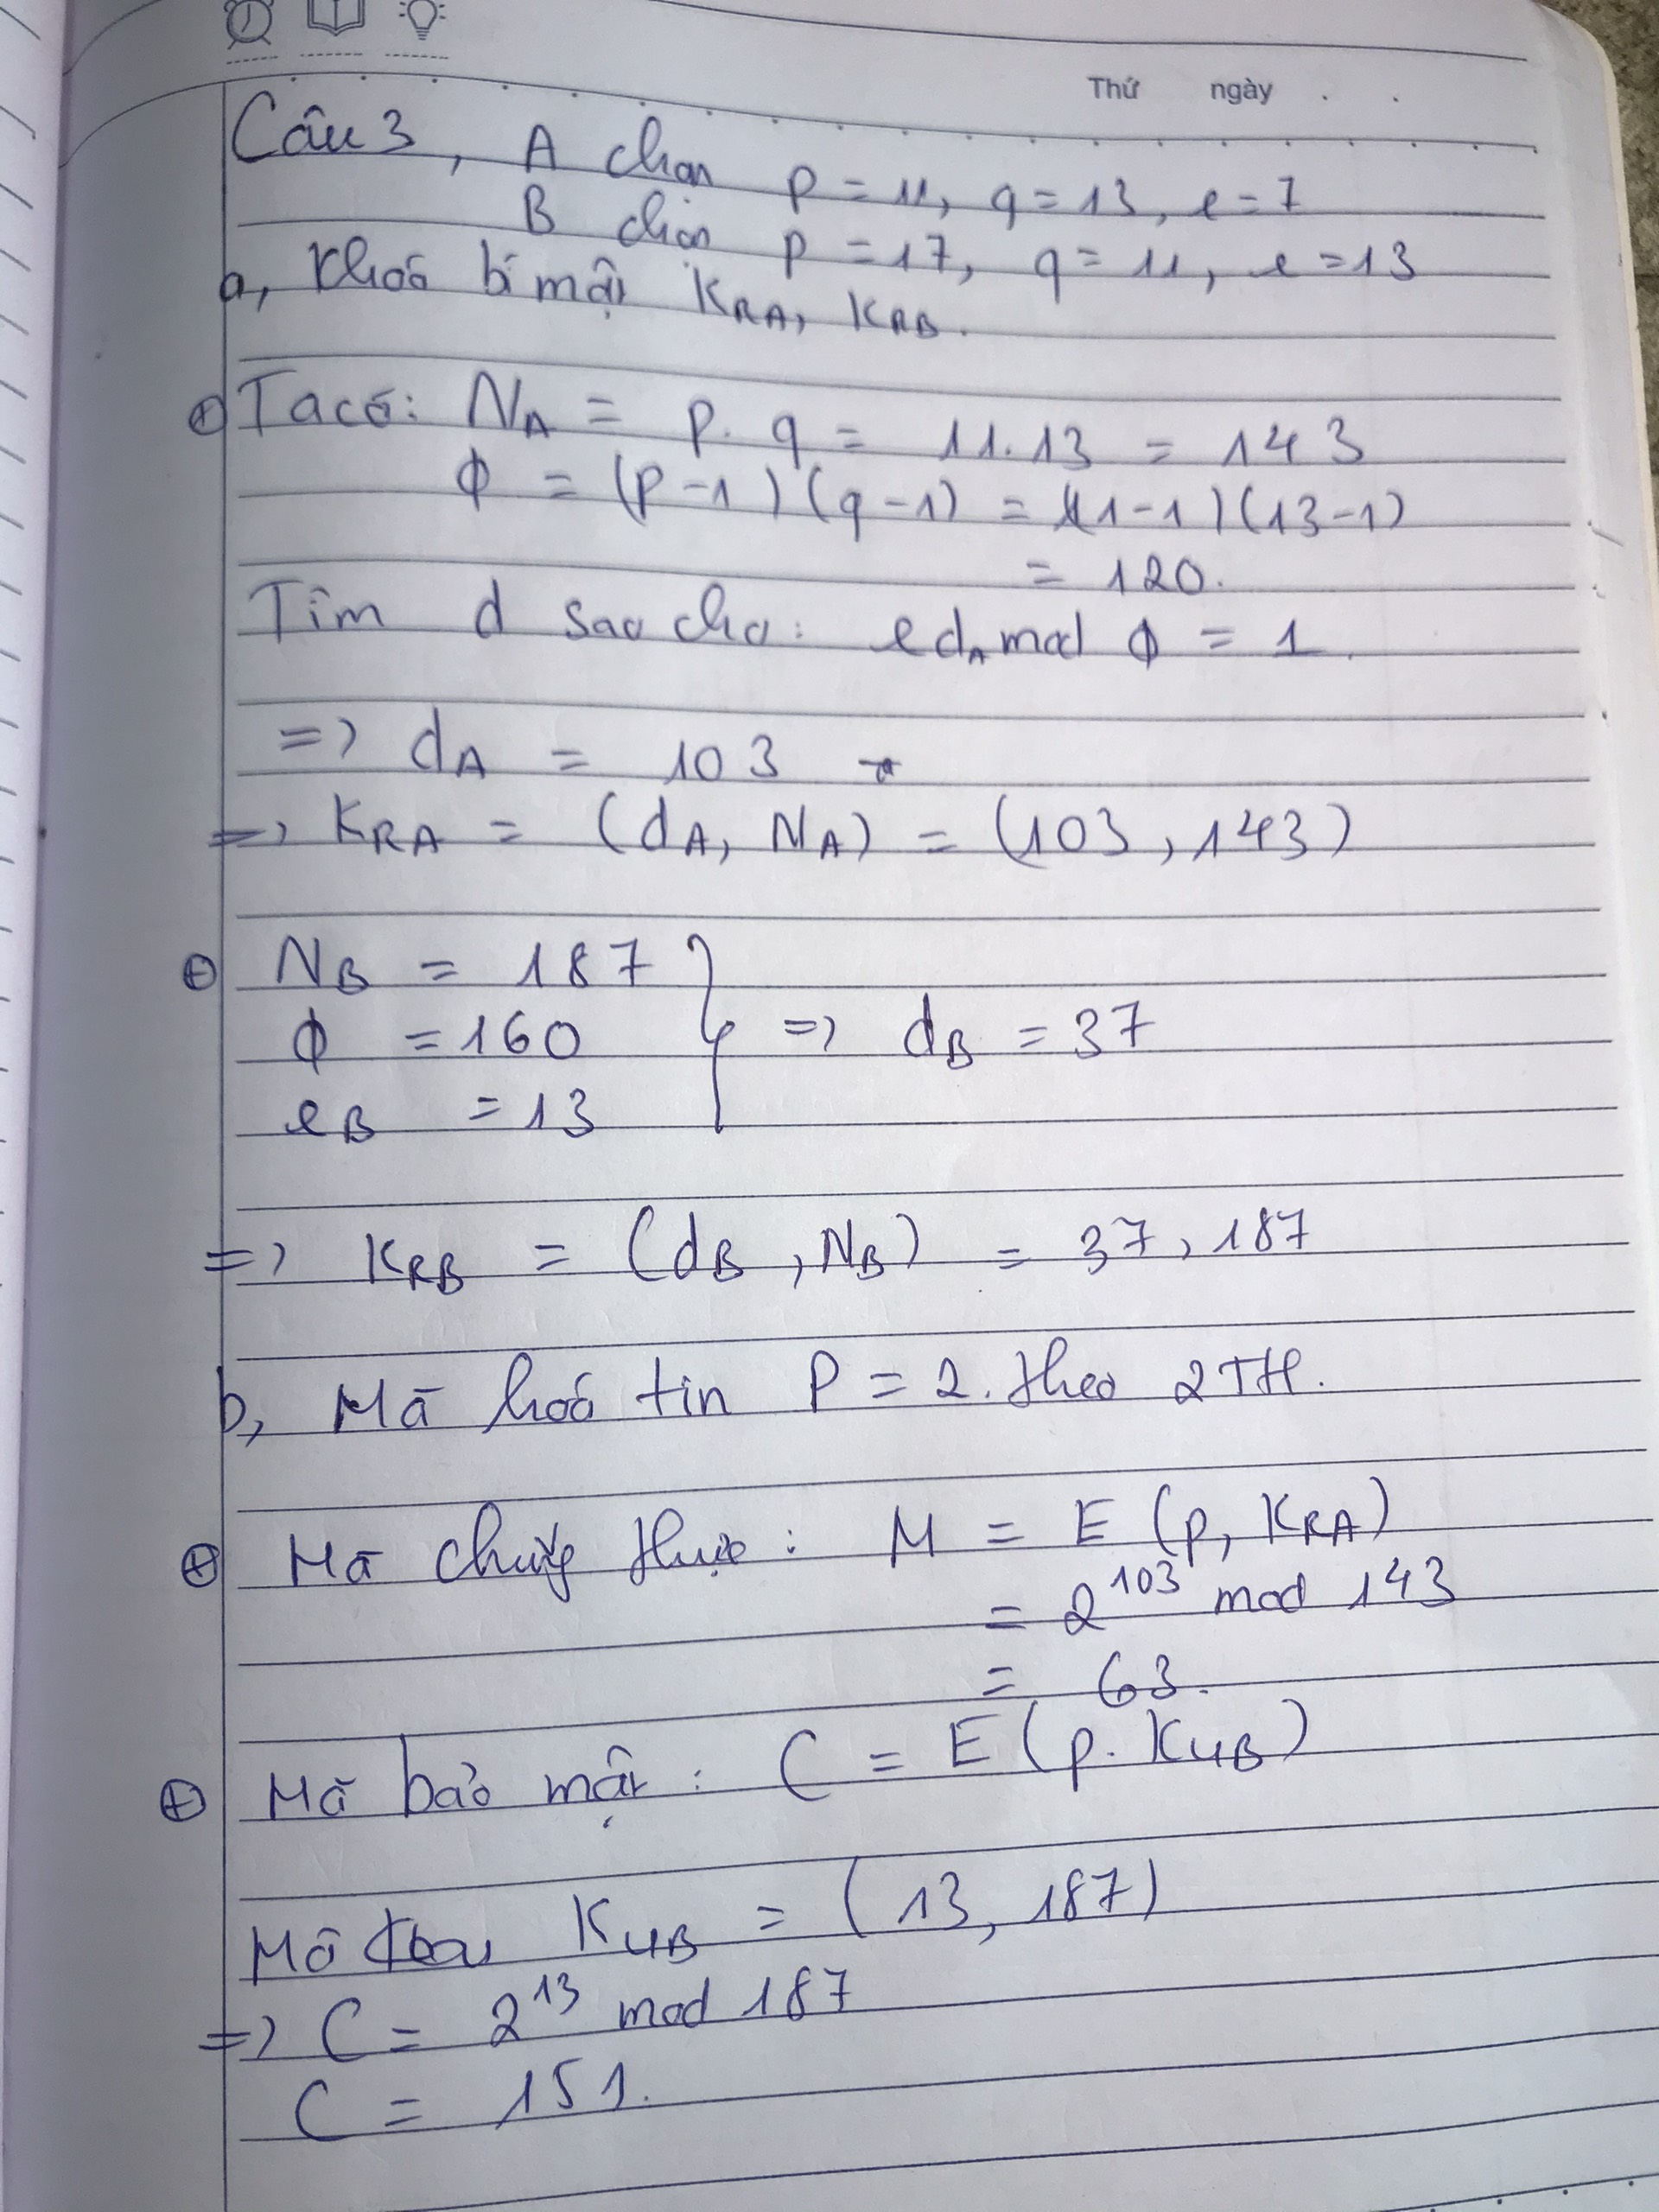 Thứ ngày . .
Câu 3, A chọn p = 11, q = 13, e = 7
B chọn p = 17, q = 11, e = 13
a, Khoá bí mật KRA, KRB.
⊕ Ta có: NA = p. q = 11.13 = 143
ϕ = (p-1)(q-1) = (11-1)(13-1)
= 120.
Tìm d sao cho: edA mod ϕ = 1.
=> dA = 103
=> KRA = (dA, NA) = (103, 143)
⊕ NB = 187
ϕ = 160 } => dB = 37
eB = 13
=> KRB = (dB, NB) = 37, 187
b, Mã hoá tin P = 2. theo 2TH.
⊕ Mã chứng thực: M = E (p, KRA)
= 2^103 mod 143
= 63.
⊕ Mã bảo mật: C = E(p. KUB)
Mã KUB = (13, 187)
=> C = 2^13 mod 187
C = 151.